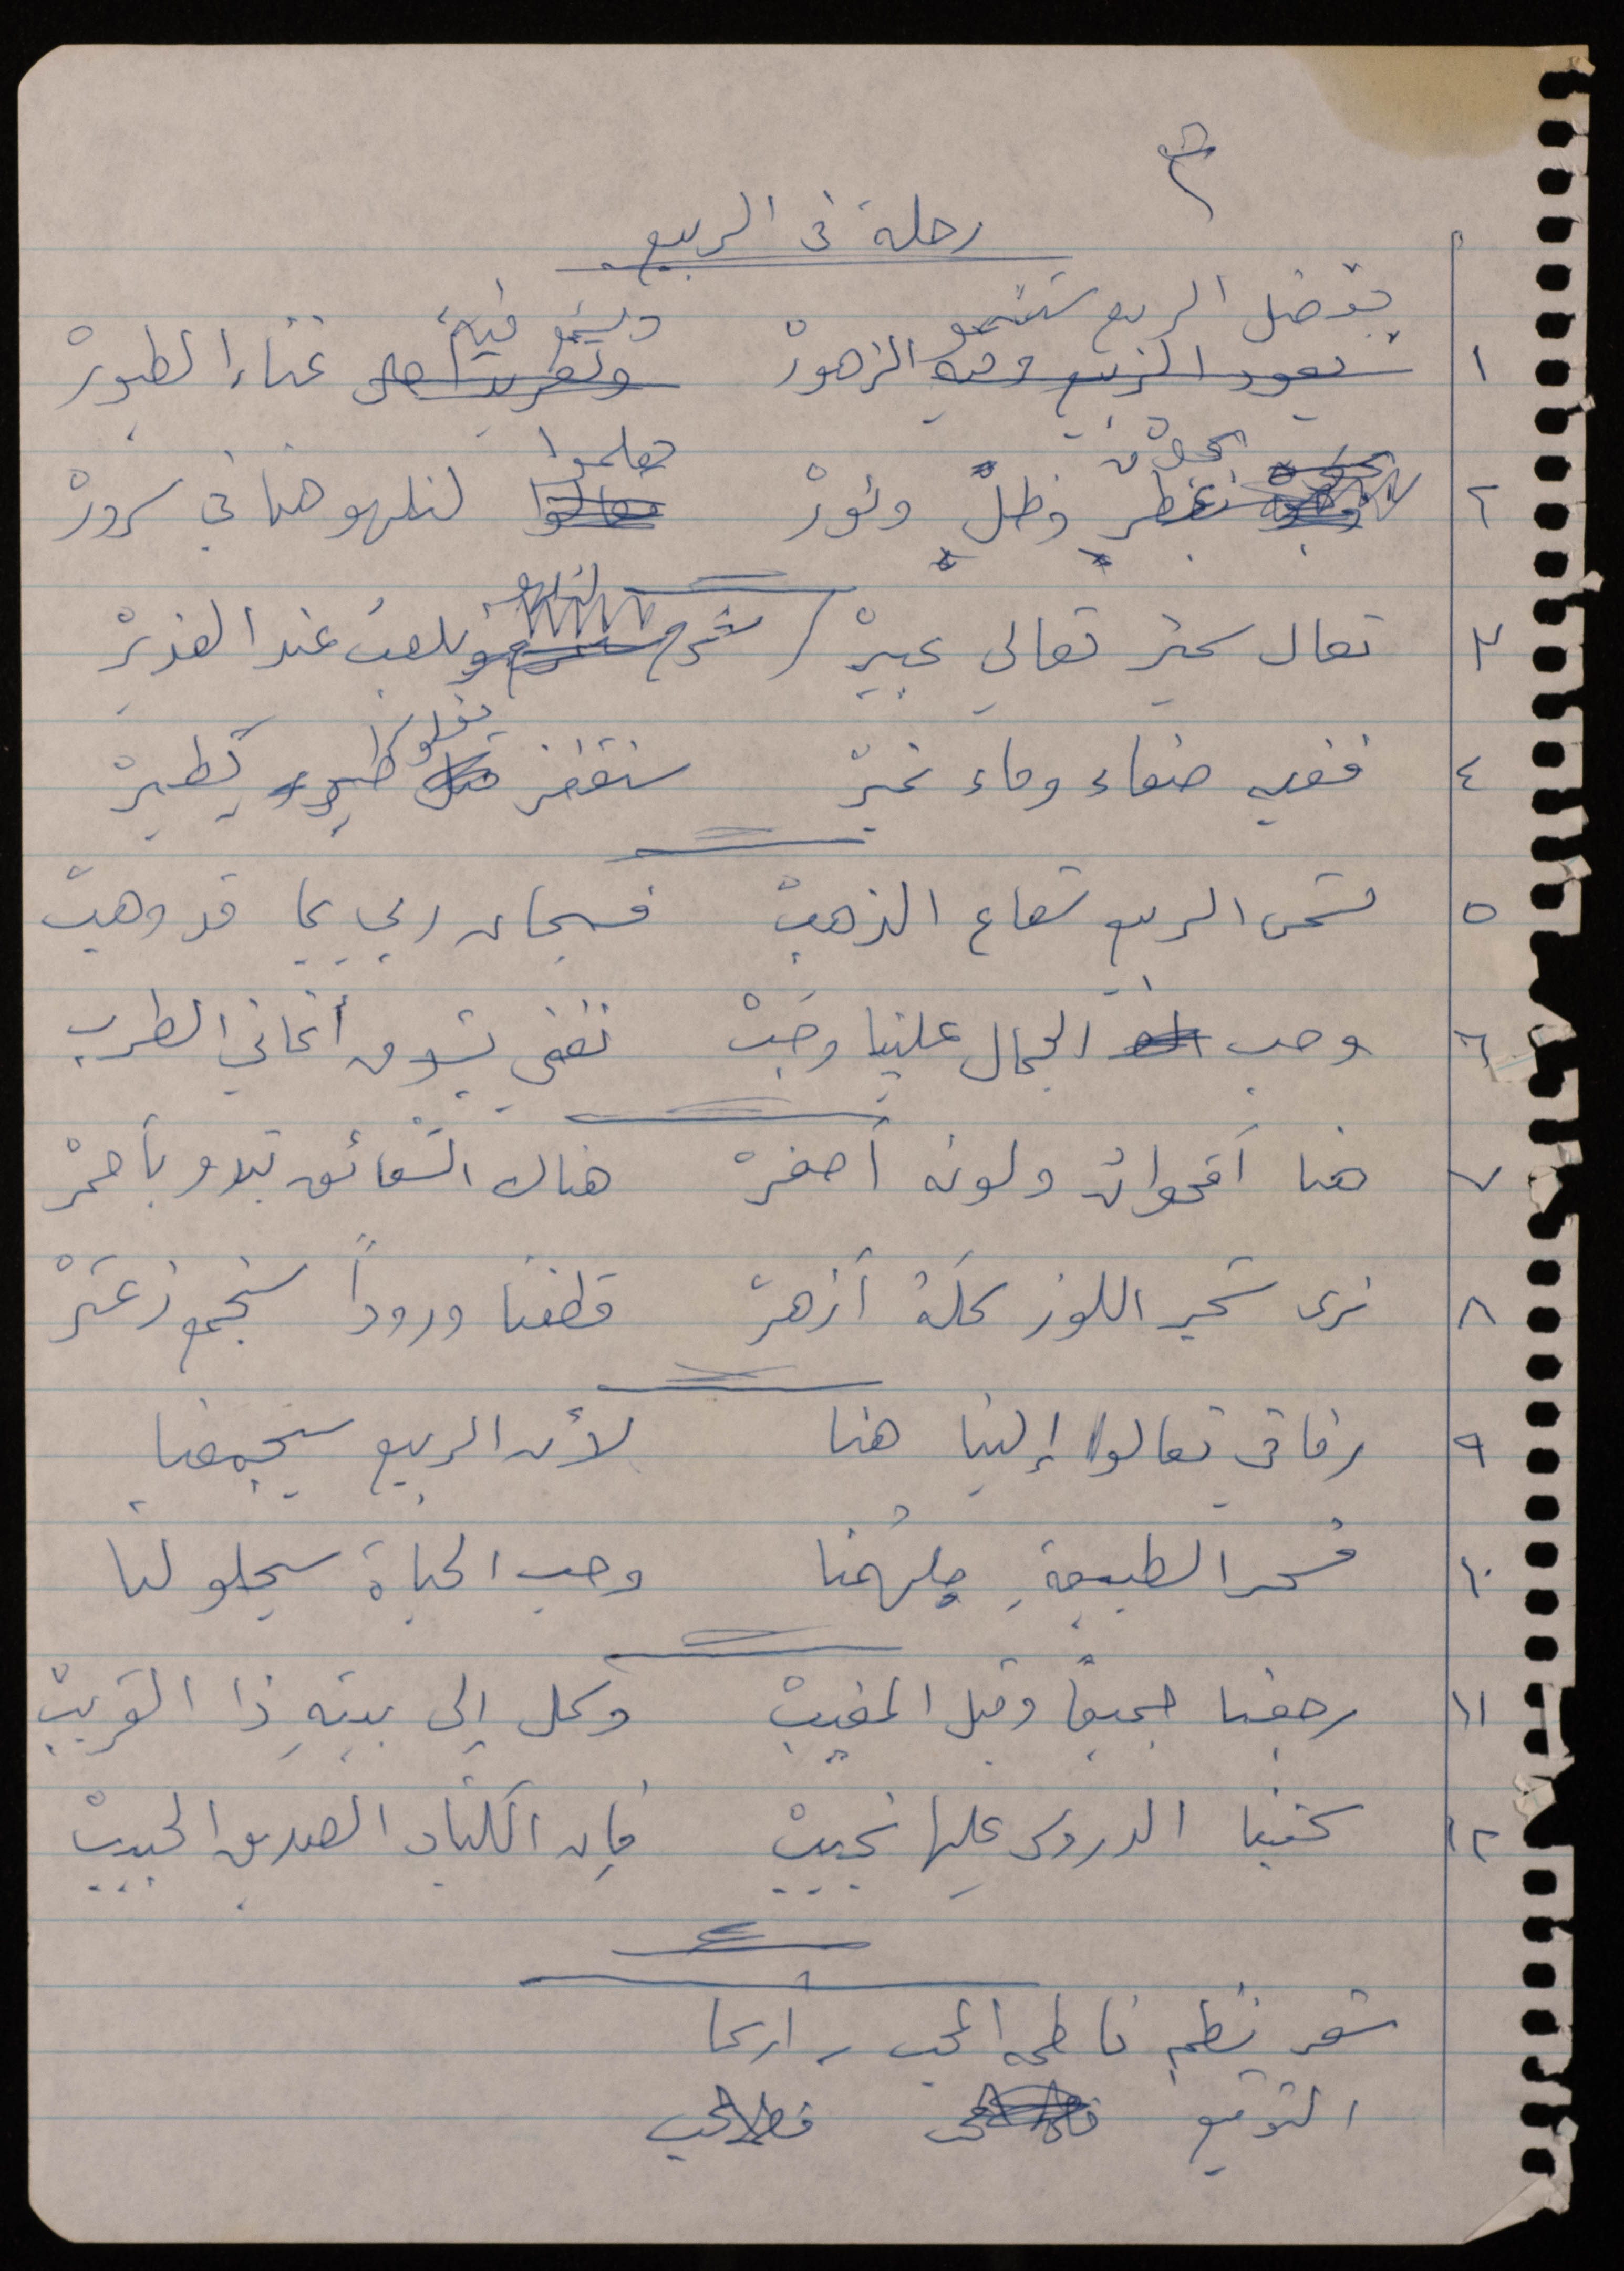 رحلة في الربيع
بفضل الربيع ستنمو ونسمع فيه
١ يعود الربيع وفيه الزهورْ غناء الطيورْ
هلموا
٢ وظلٌ ونورْ لنلهو هنا في سرورْ
٣ تعال سمير تعالي عبيرْ سنمرح ونلعب عند الغديرْ
٤ ففيه صفاء وماء نميرْ سنقفز مثل طيور تطيرْ
٥ شمس الربيع شعاع الذهبْ فسبحان ربي بما قد وهبْ
٦ وحب الجمال علينا وجَبْ نغني بشوق أغاني الطرب
٧ هنا أقحوان ولونه أصفرْ هناك الشقائق تبدو بأحمرْ
٨ نرى شجر اللوز كله أزهرْ قطفنا وروداً سنجمع زعترْ
٩ رفاقي تعالوا إلينا هنا لأن الربيع سيجمعنا
١٠ فسحر الطبيعةِ يلهُمنا وحب الحياة سيحلو لنا
١١ رجعنا جميعاً وقبل المغيبْ وكل إلى بيتهِ ذا القريبْ
١٢ كتبنا الدروس عليها نجيبْ فإن الكتاب الصديق الحبيبْ
شعر ونظم فاطمه المحب - اريحا
التوقيع ف المحب